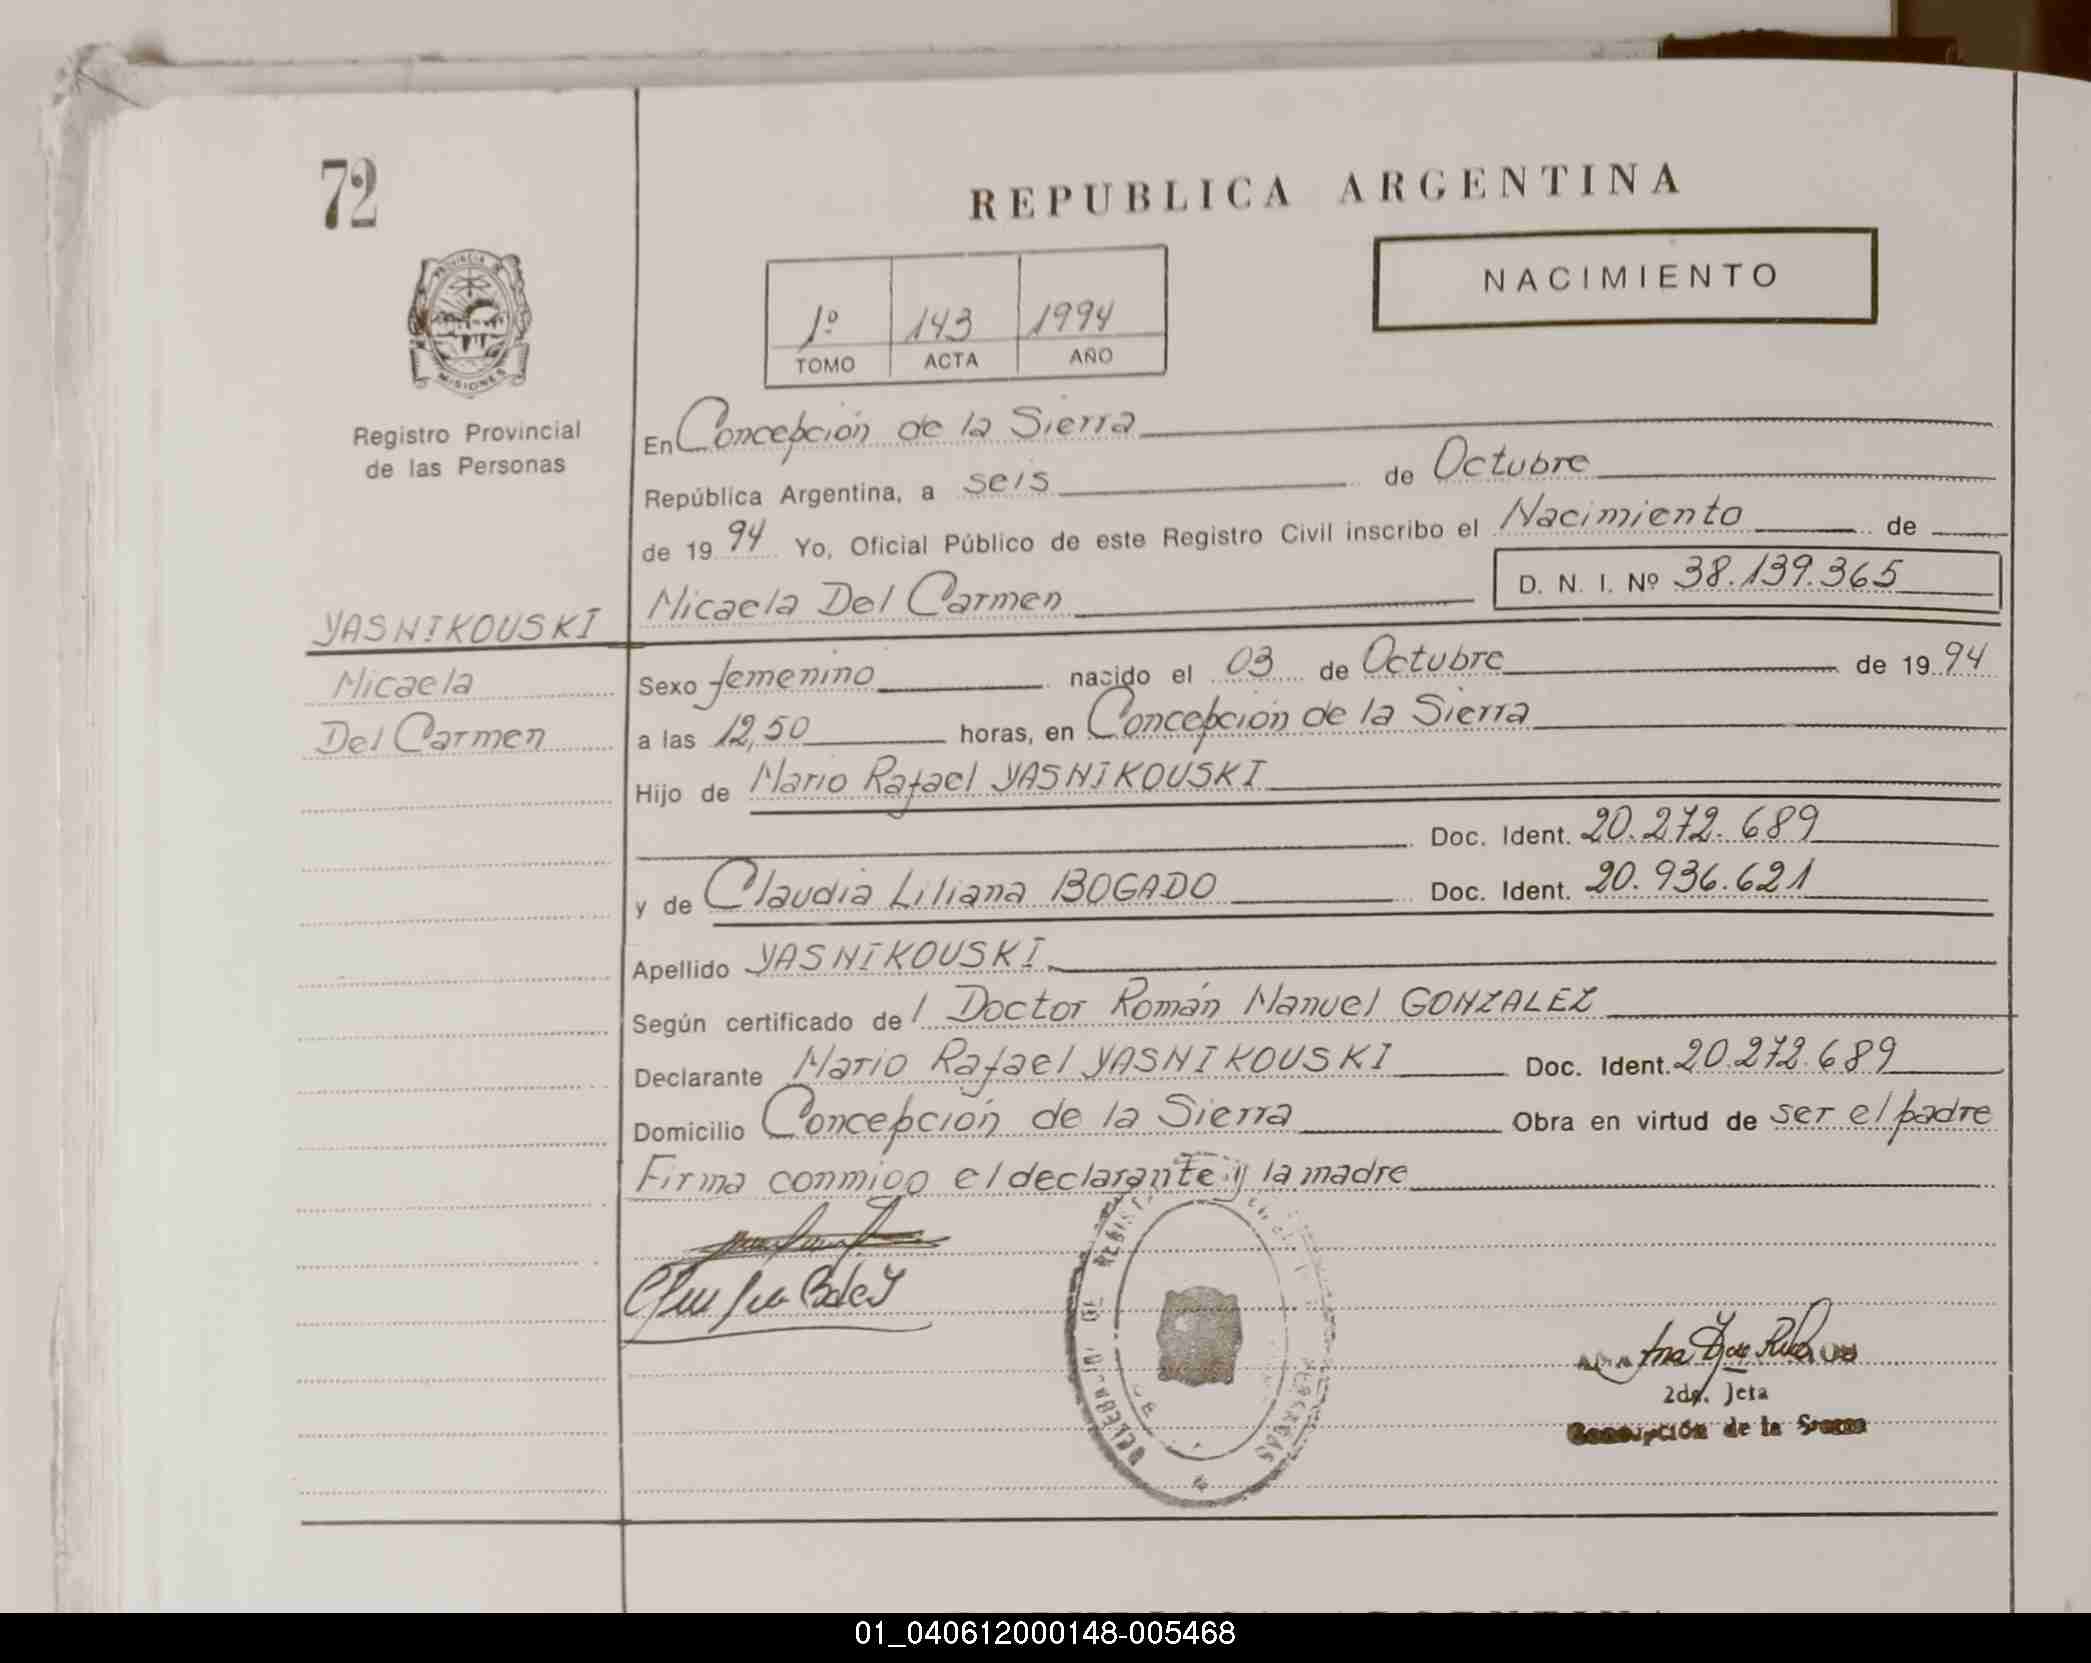 72
REPUBLICA ARGENTINA
NACIMIENTO
1º 143 1994
TOMO ACTA AÑO
PROVINCIA DE
MISIONES
Registro Provincial
de las Personas
En Concepción de la Sierra
República Argentina, a seis de Octubre
de 19 94 Yo, Oficial Público de este Registro Civil inscribo el Nacimiento de
Micaela Del Carmen D. N. I. Nº 38.139.365
YASNIKOUSKI
Micaela
Del Carmen
Sexo femenino nacido el 03 de Octubre de 19 94
a las 12,50 horas, en Concepción de la Sierra
Hijo de Mario Rafael YASNIKOUSKI
Doc. Ident. 20.272.689
y de Claudia Liliana BOGADO Doc. Ident. 20.936.621
Apellido YASNIKOUSKI
Según certificado del Doctor Román Manuel GONZALEZ
Declarante Mario Rafael YASNIKOUSKI Doc. Ident. 20.272.689
Domicilio Concepción de la Sierra Obra en virtud de ser el padre
Firma conmigo el declarante y la madre
2da. Jefa
Concepción de la Sierra
01_040612000148-005468